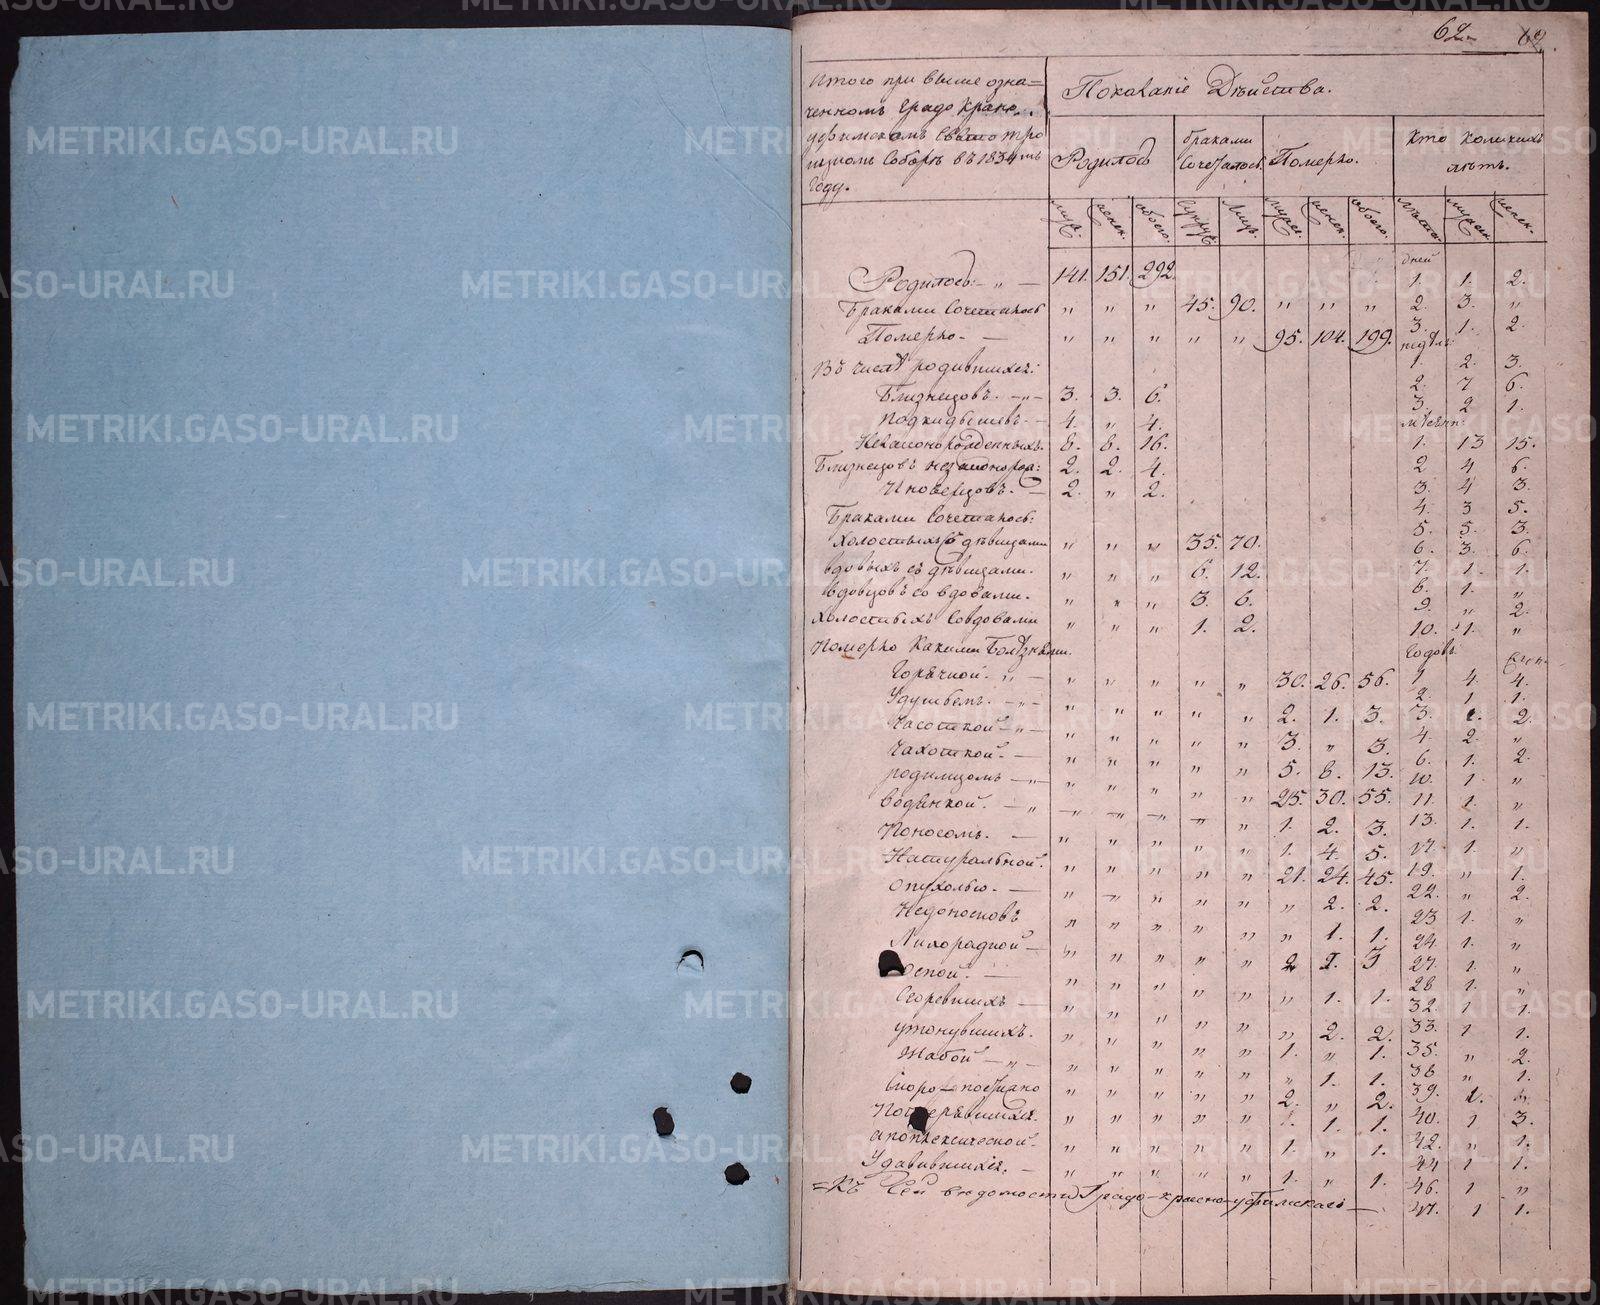 62 62.
Итого при выше озна=
ченномъ Градо Красно
уфимскомъ Свято Тро
ицкомъ Соборѣ въ 1834мъ
Году.
Показаніе Дѣйства.
Родилось
браками Сочеталось
Померло.
кто коликихъ лѣтъ.
муж. женск. обоего. Супруж. Лицъ. мужес. женск. обоего. Лѣта. мужеск. женск.
дней
Родилось: " — 141. 151. 292. 1. 1. 2.
Браками Сочеталось " " " 45. 90. " " " 2. 3. "
Померло. — " " " " " 95. 104. 199. 3. 1. 2.
недѣль:
Въ числѣ родившихся: 1 2. 3.
2. 7 6.
Близнецовъ. — 3. 3. 6. 3. 2 1.
Подкидышевъ. — 4. " 4.
мѣсяц:
Незаконорожденныхъ. 8. 8. 16. 1. 13 15.
Близнецовъ незаконорож: 2. 2. 4. 2 4 6.
Иновѣрцовъ. — 2. " 2. 3. 4 3.
Браками Сочеталось: 4. 3 5.
5. 5. 3.
Холостыхъ съ дѣвицами " " " 35. 70. 6. 3. 6.
вдовыхъ съ дѣвицами. " " " 6. 12. 7. 1. 1.
вдовцовъ со вдовами. " " " 3. 6. 8. 1. "
9. " 2.
Холостыхъ Совдовами " " " 1. 2. 10. 1. "
Померло Какими Болѣзнями. Годовъ
Горячкой. " — " " " " " 30. 26. 56. 1 4. 4.
2. 1 1.
Удушьемъ. — " " " " " 2. 1. 3. 3. 1. 2.
Часоткой — " " " " " 3. " 3. 4. 2. "
Чахоткой. — " " " " " 5. 8. 13. 6. 1. 2.
родимцомъ — " " " " " 25. 30. 55. 10. 1 "
11. 1. "
водянкой. — " " " " " 1. 2. 3. 13. 1. 1.
Поносомъ. — " " " " " 1. 4. 5. 17. 1. "
Натуральной. " " " " " 21. 24. 45. 19. " 1.
Опухолью. — " " " " " " 2. 2. 22. " 2.
Недоносковъ " " " " " " 1. 1. 23 1. "
Лихорадкой — " " " " " 2 1. 3 24. 1. "
27. 1. "
Оспой. — " " " " " " 1. 1. 28 1. "
Сгоревшихъ — " " " " " " 2. 2. 32. 1. 1.
33. 1 1.
утонувшихъ. " " " " " 1. " 1. 35. " 2.
Жабой — " " " " " " 1. 1. 36 " 1.
Скоро-постижно " " " " " 2. " 2. 39. 1. "
Пострѣвшихся " " " " " 1. 1. 40. 1 3.
апоплексической. " " " " " 1. " 1. 42. " 1.
Удавившихся. — " " " " " 1. " 1. 44 1 1.
46. 1 "
=Къ Сей вѣдомости Градо-Красно-уфимскаго — 47. 1 1.
METRIKI.GASO-URAL.RU